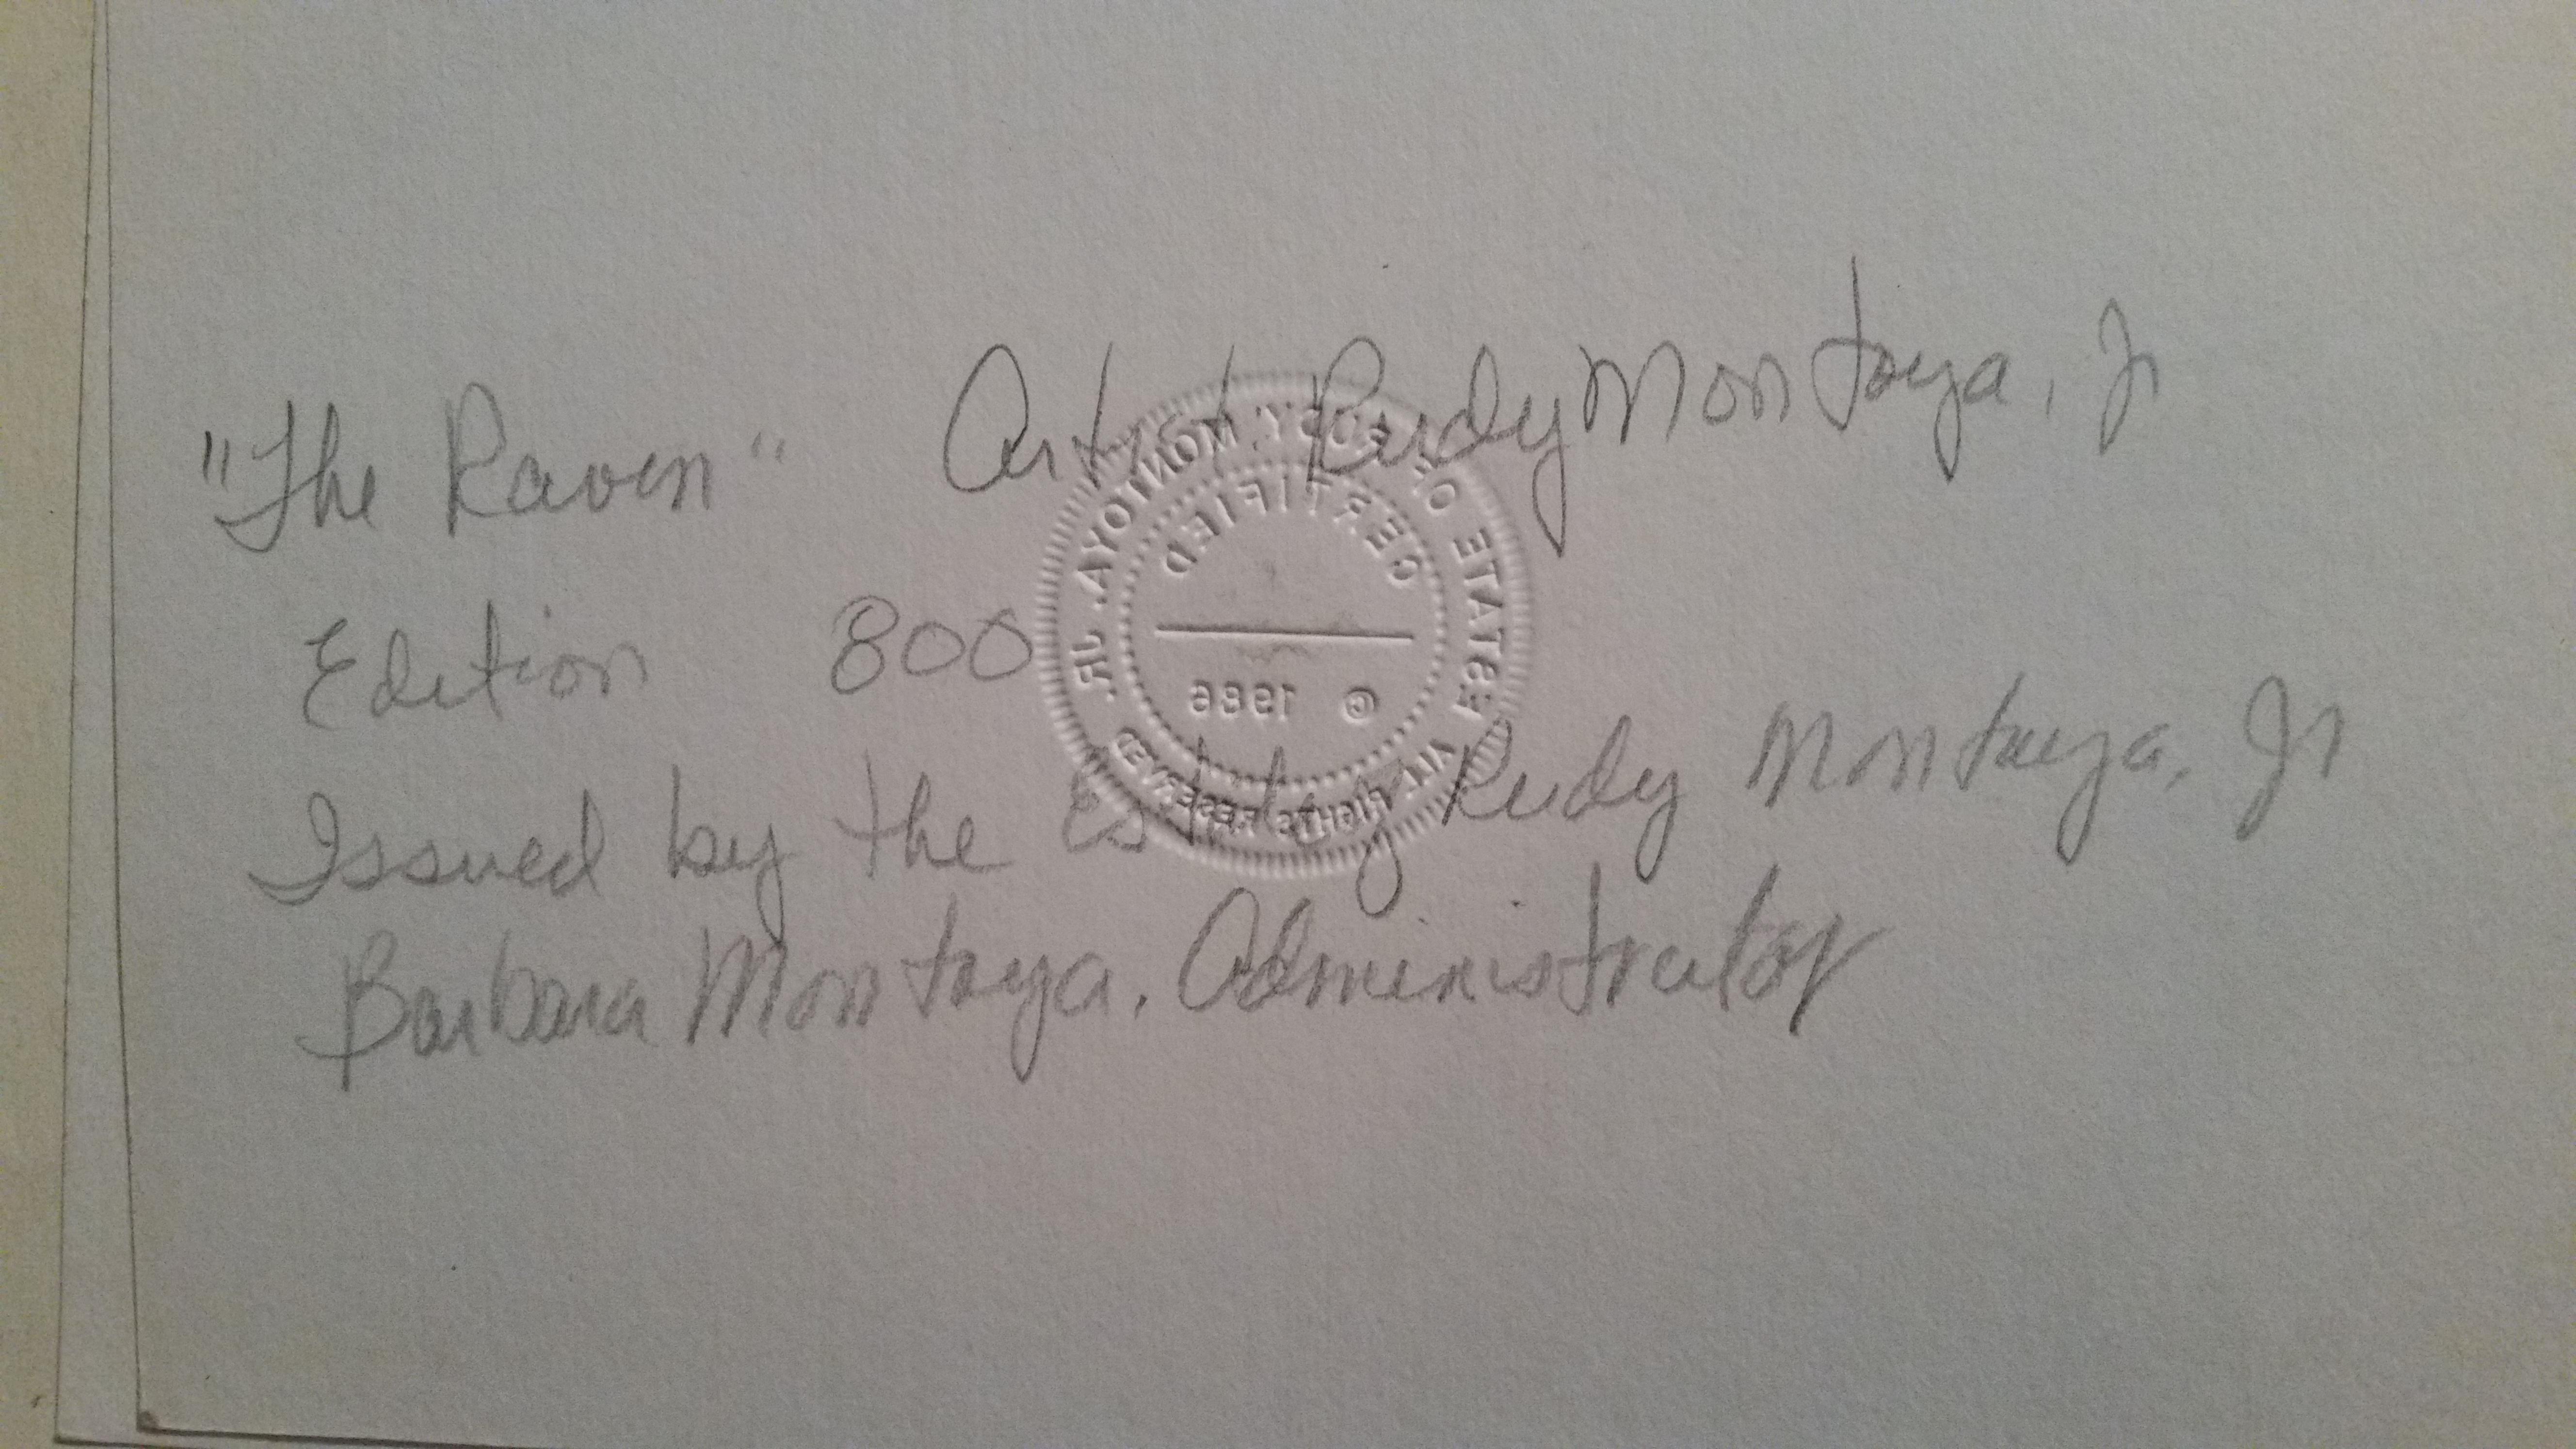 "The Raven" Artist Rudy Montoya, Jr
Edition 800
Issued by the Estate of Rudy Montoya, Jr
Barbara Montoya, Administrator
ESTATE OF RUDY MONTOYA, JR.
CERTIFIED
© 1986
ALL RIGHTS RESERVED